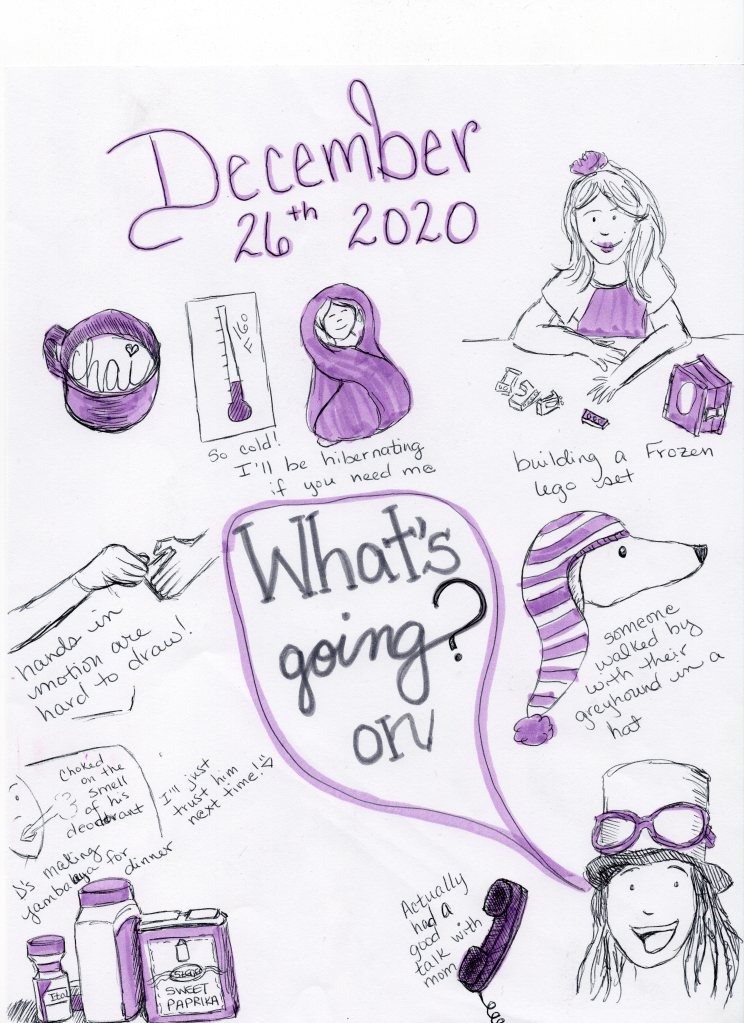 December
26th 2020
Chai
F160
So cold!
I'll be hibernating
if you need me
building a Frozen
lego set
What's
going?
on
hands in
motion are
hard to draw!
someone
walked by
with their
greyhound in a
hat
Choked
on the
smell
of his
deodorant
I'll just
trust him
next time!
D's making
jambalaya for
dinner
Actually
had a
good
talk with
mom
Ital
SWEET
PAPRIKA